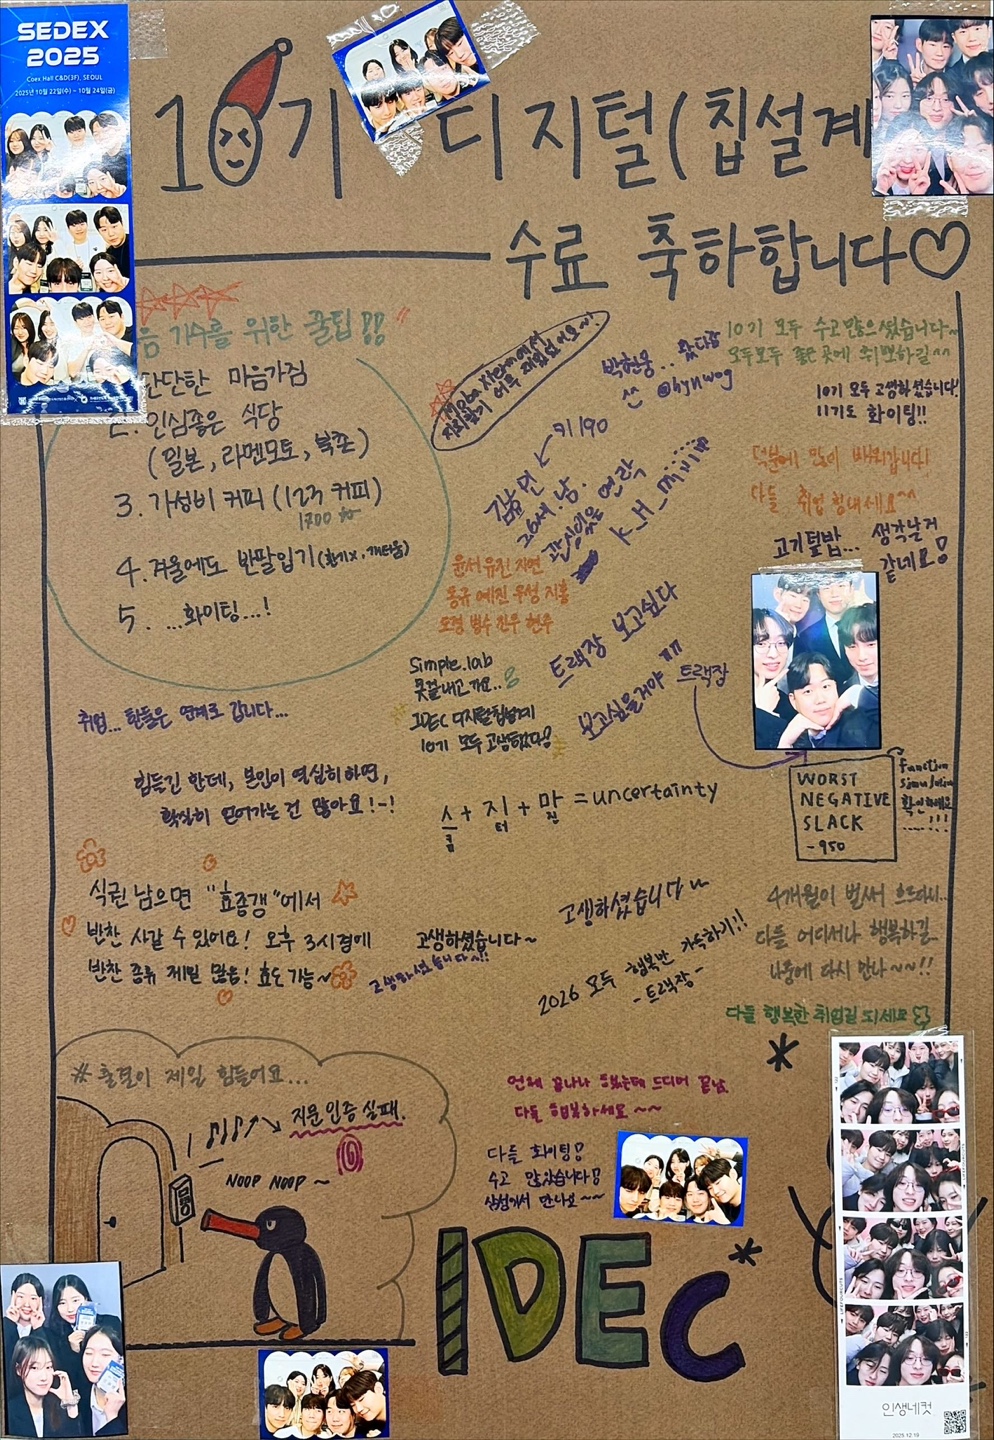 SEDEX
2025
Coex Hall C&D(3F), SEOUL
2025년 10월 22일(수) ~ 10월 24일(금)
10기 디지털(칩설계
수료 축하합니다♡
음 기수를 위한 꿀팁!!
단단한 마음가짐
2. 인심좋은 식당
(밀본, 라멘모토, 북촌)
3. 가성비 커피 (123 커피)
1700
4. 겨울에도 반팔입기
5. ...화이팅...!
어무 재밌었어요~!
박현웅.. 왔다감
^^ @hynwog
키 190
26세 남.
관심있음 연락
K_H_minin
10기 모두 수고많으셨습니다~
모두모두 좋은 곳에 취뽀하길^^
10기 모두 고생하셨습니다!
11기도 화이팅!!
덕분에 많이 배워갑니다!
다들 취업 힘내세요^^
고기덮밥... 생각날거
같네요!
윤서 유진 지연
동규 예진 우성 지홍
도경 범수 진우 현우
simple.lab
못끝내고 가요..
IDEC 디지털칩설계
10기 모두 고생했다!
트랙장 보고싶다
보고싶을거야 ㅠㅠ
트랙장
취업... 힘들은 연계로 갑니다...
힘들긴 한데, 본인이 열심히하면,
확실히 얻어가는건 많아요!-!
스킴 + 지터 + 마진 = uncertainty
WORST
NEGATIVE
SLACK
-950
function
simulation
확인하세요
....!!!
식권 남으면 "효종갱"에서
반찬 사갈 수 있어요! 오후 3시경에
반찬 종류 제일 많음! 효도 가능~
고생하셨습니다~
고생하셨습니다~!!
고생하셨습니다~
2026 모두 행복만 가득하기!!
- 트랙장 -
4개월이 벌써 흐르다니..
다들 어디서나 행복하길..
나중에 다시 만나~~!!
다들 행복한 취업길 되세요
# 출결이 제일 힘들어요...
지문인증 실패.
NOOP NOOP ~
언제 끝나나 했는데 드디어 끝남.
다들 행복하세요~~
다들 화이팅!
수고 많았습니다!
삼성에서 만나요~~
IDEC
인생네컷
2025.12.19